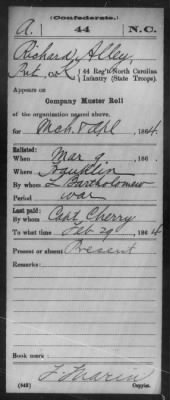 (Confederate.)
A. 44 N.C.
Richard Alley
Pvt, Co K, 44 Reg't North Carolina
Infantry (State Troops).
Appears on
Company Muster Roll
of the organization named above,
for Mch & Apl, 1864.
Enlisted:
When Mar 9, 186
Where Franklin
By whom L Bartholomew
Period war
Last paid:
By whom Capt Cherry
To what time Feb 29, 1864
Present or absent Present
Remarks:
Book mark:
(642) Copyist.